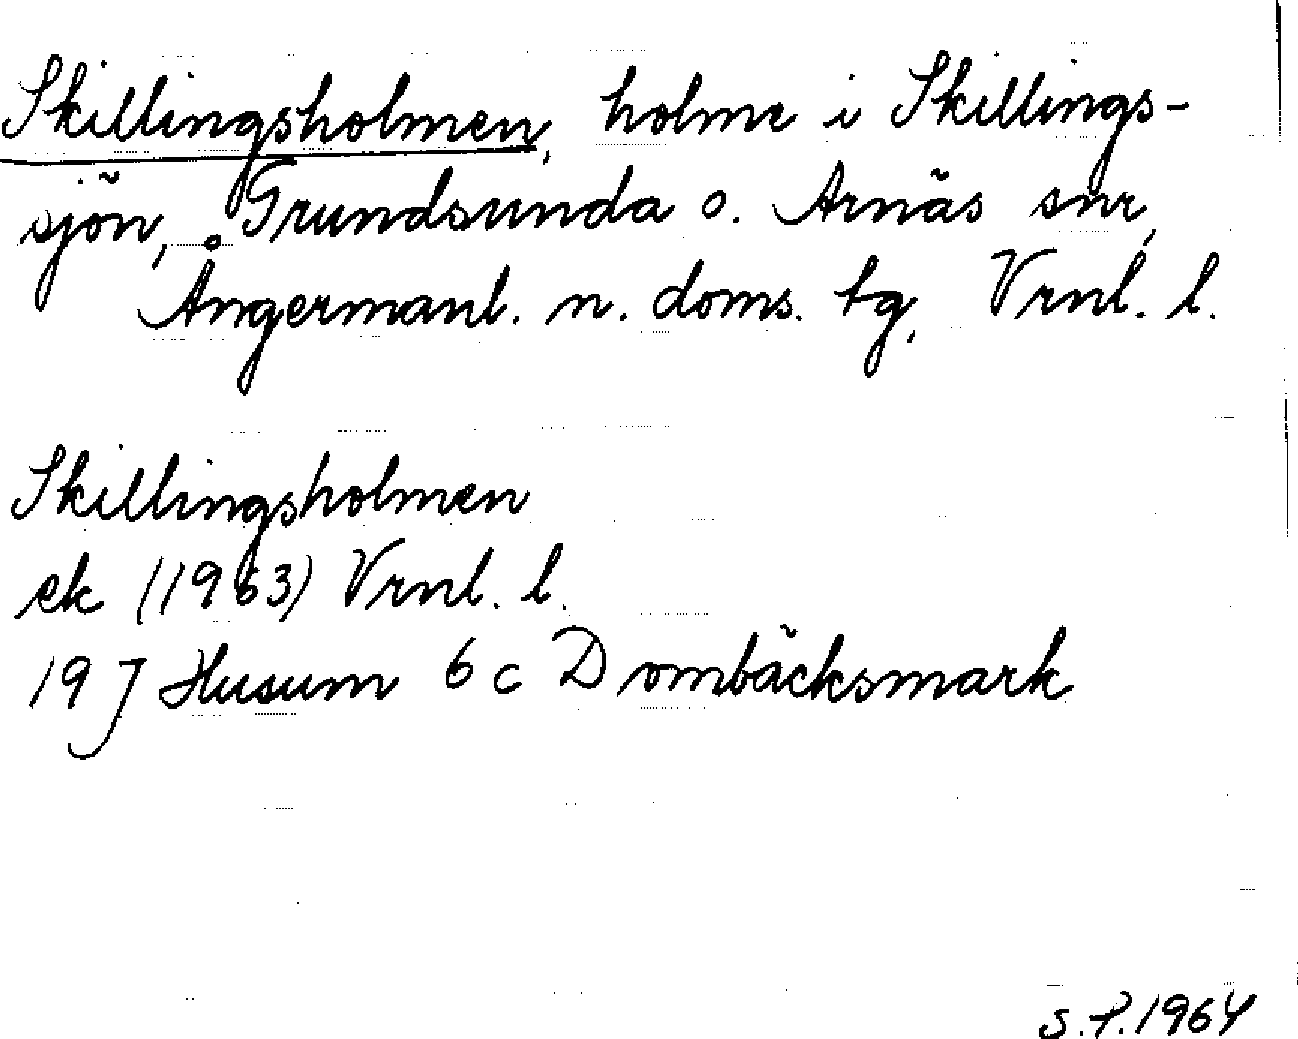 Skillingsholmen, holme i Skillings-
sjön, Grundsunda o. Arnäs snr,
Ångermanl. n. doms. tg, Vrnl. l.
Skillingsholmen
ek (1963) Vrnl. l.
19 J Husum 6 c Dombäcksmark
S.P. 1964